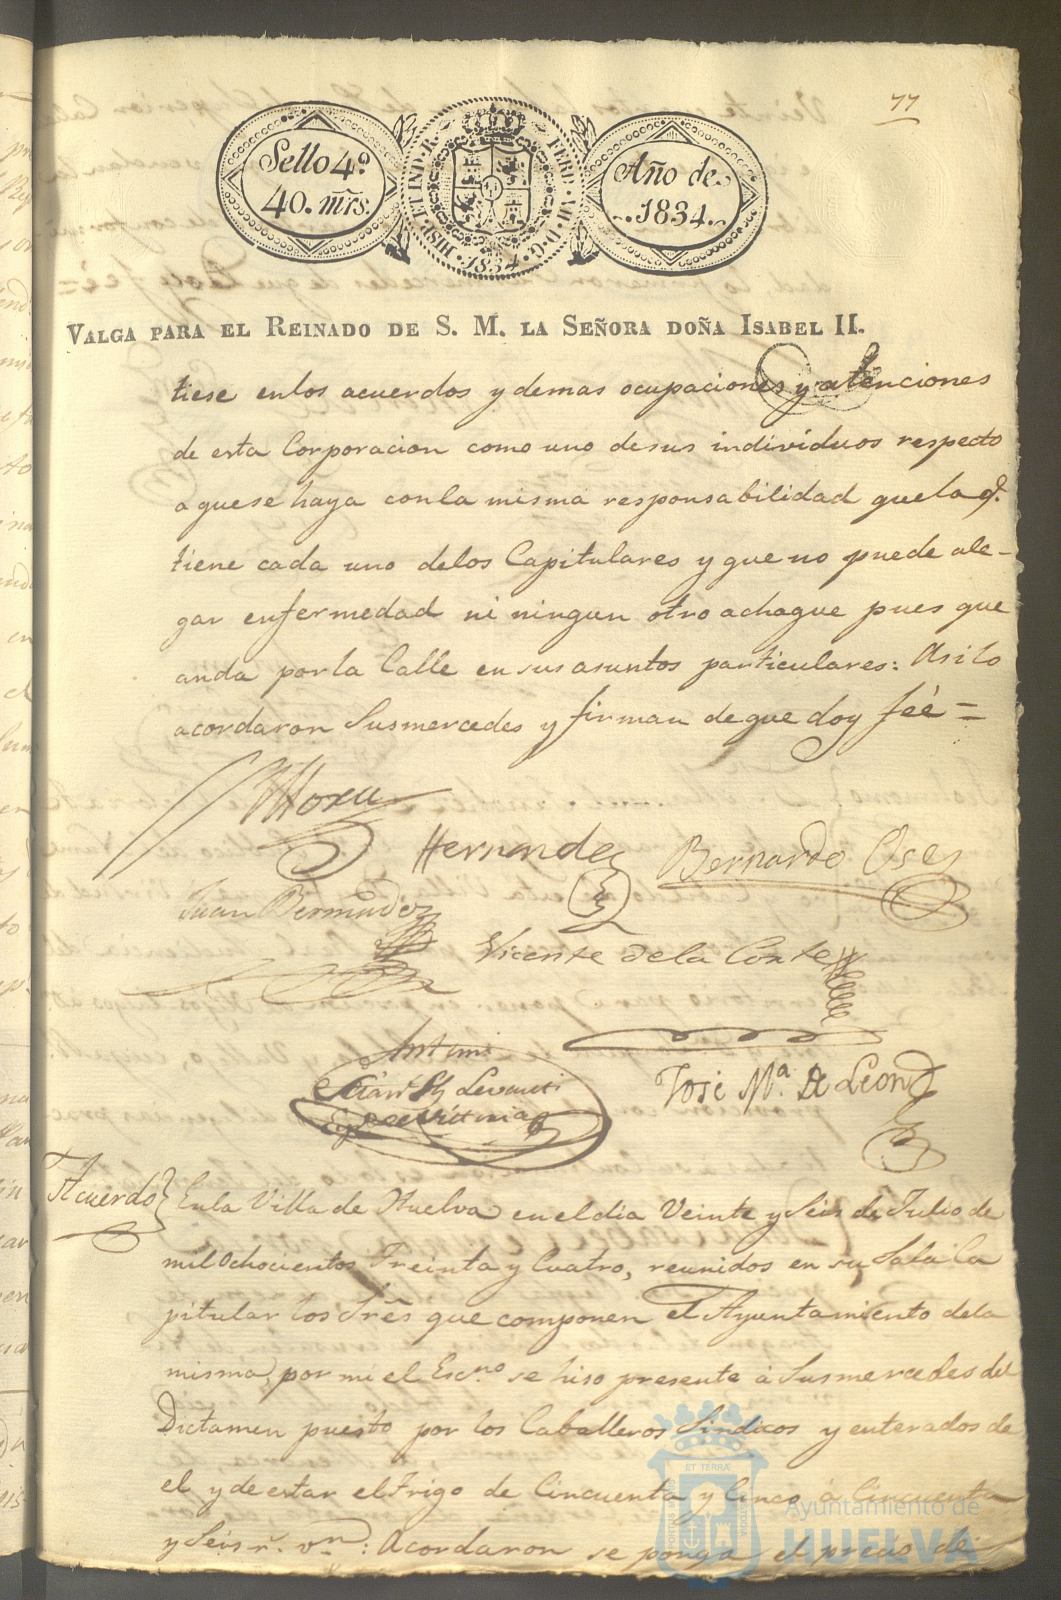 77
Sello 4º
40. mrs.
HISP. ET IND. R.
FERD. VII. D. G.
1834
Año de
1834.
VALGA PARA EL REINADO DE S. M. LA SEÑORA DOÑA ISABEL II.
tiese en los acuerdos y demas ocupaciones y atenciones
de esta Corporacion como uno de sus individuos respecto
a que se haya con la misma responsabilidad que la q.
tiene cada uno de los Capitulares y que no puede ale-
gar enfermedad ni ningun otro achaque pues que
anda por la Calle en sus asuntos particulares: Asi lo
acordaron Susmercedes y firman de que doy feé =
Hernandez
Bernardo Oses
Juan Bermudez
Vicente de la Corte
Antemi
José Mª. De Leon
Acuerdo
En la Villa de Huelva en el dia Veinte y Seis de Julio de
mil Ochocientos Treinta y Cuatro, reunidos en su Sala Ca
pitular los Sres que componen el Ayuntamiento de la
misma, por mi el Escno se hiso presente á Susmercedes del
Dictamen puesto por los Caballeros Sindicos y enterados de
el y de estar el trigo de Cincuenta y Cinco á Cincuenta
y Seis r. vn: Acordaron se ponga el precio de
ET TERRÆ
Ayuntamiento de
HUELVA